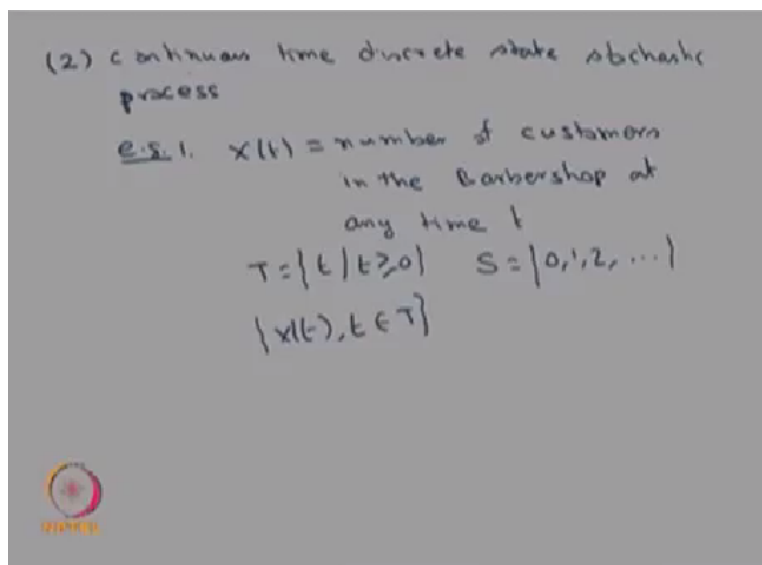 (2) continuous time discrete state stochastic
process
e.g. 1. X(t) = number of customers
in the Barbershop at
any time t
T = {t | t ≥ 0} S = {0, 1, 2, ...}
{X(t), t ∈ T}
NPTEL